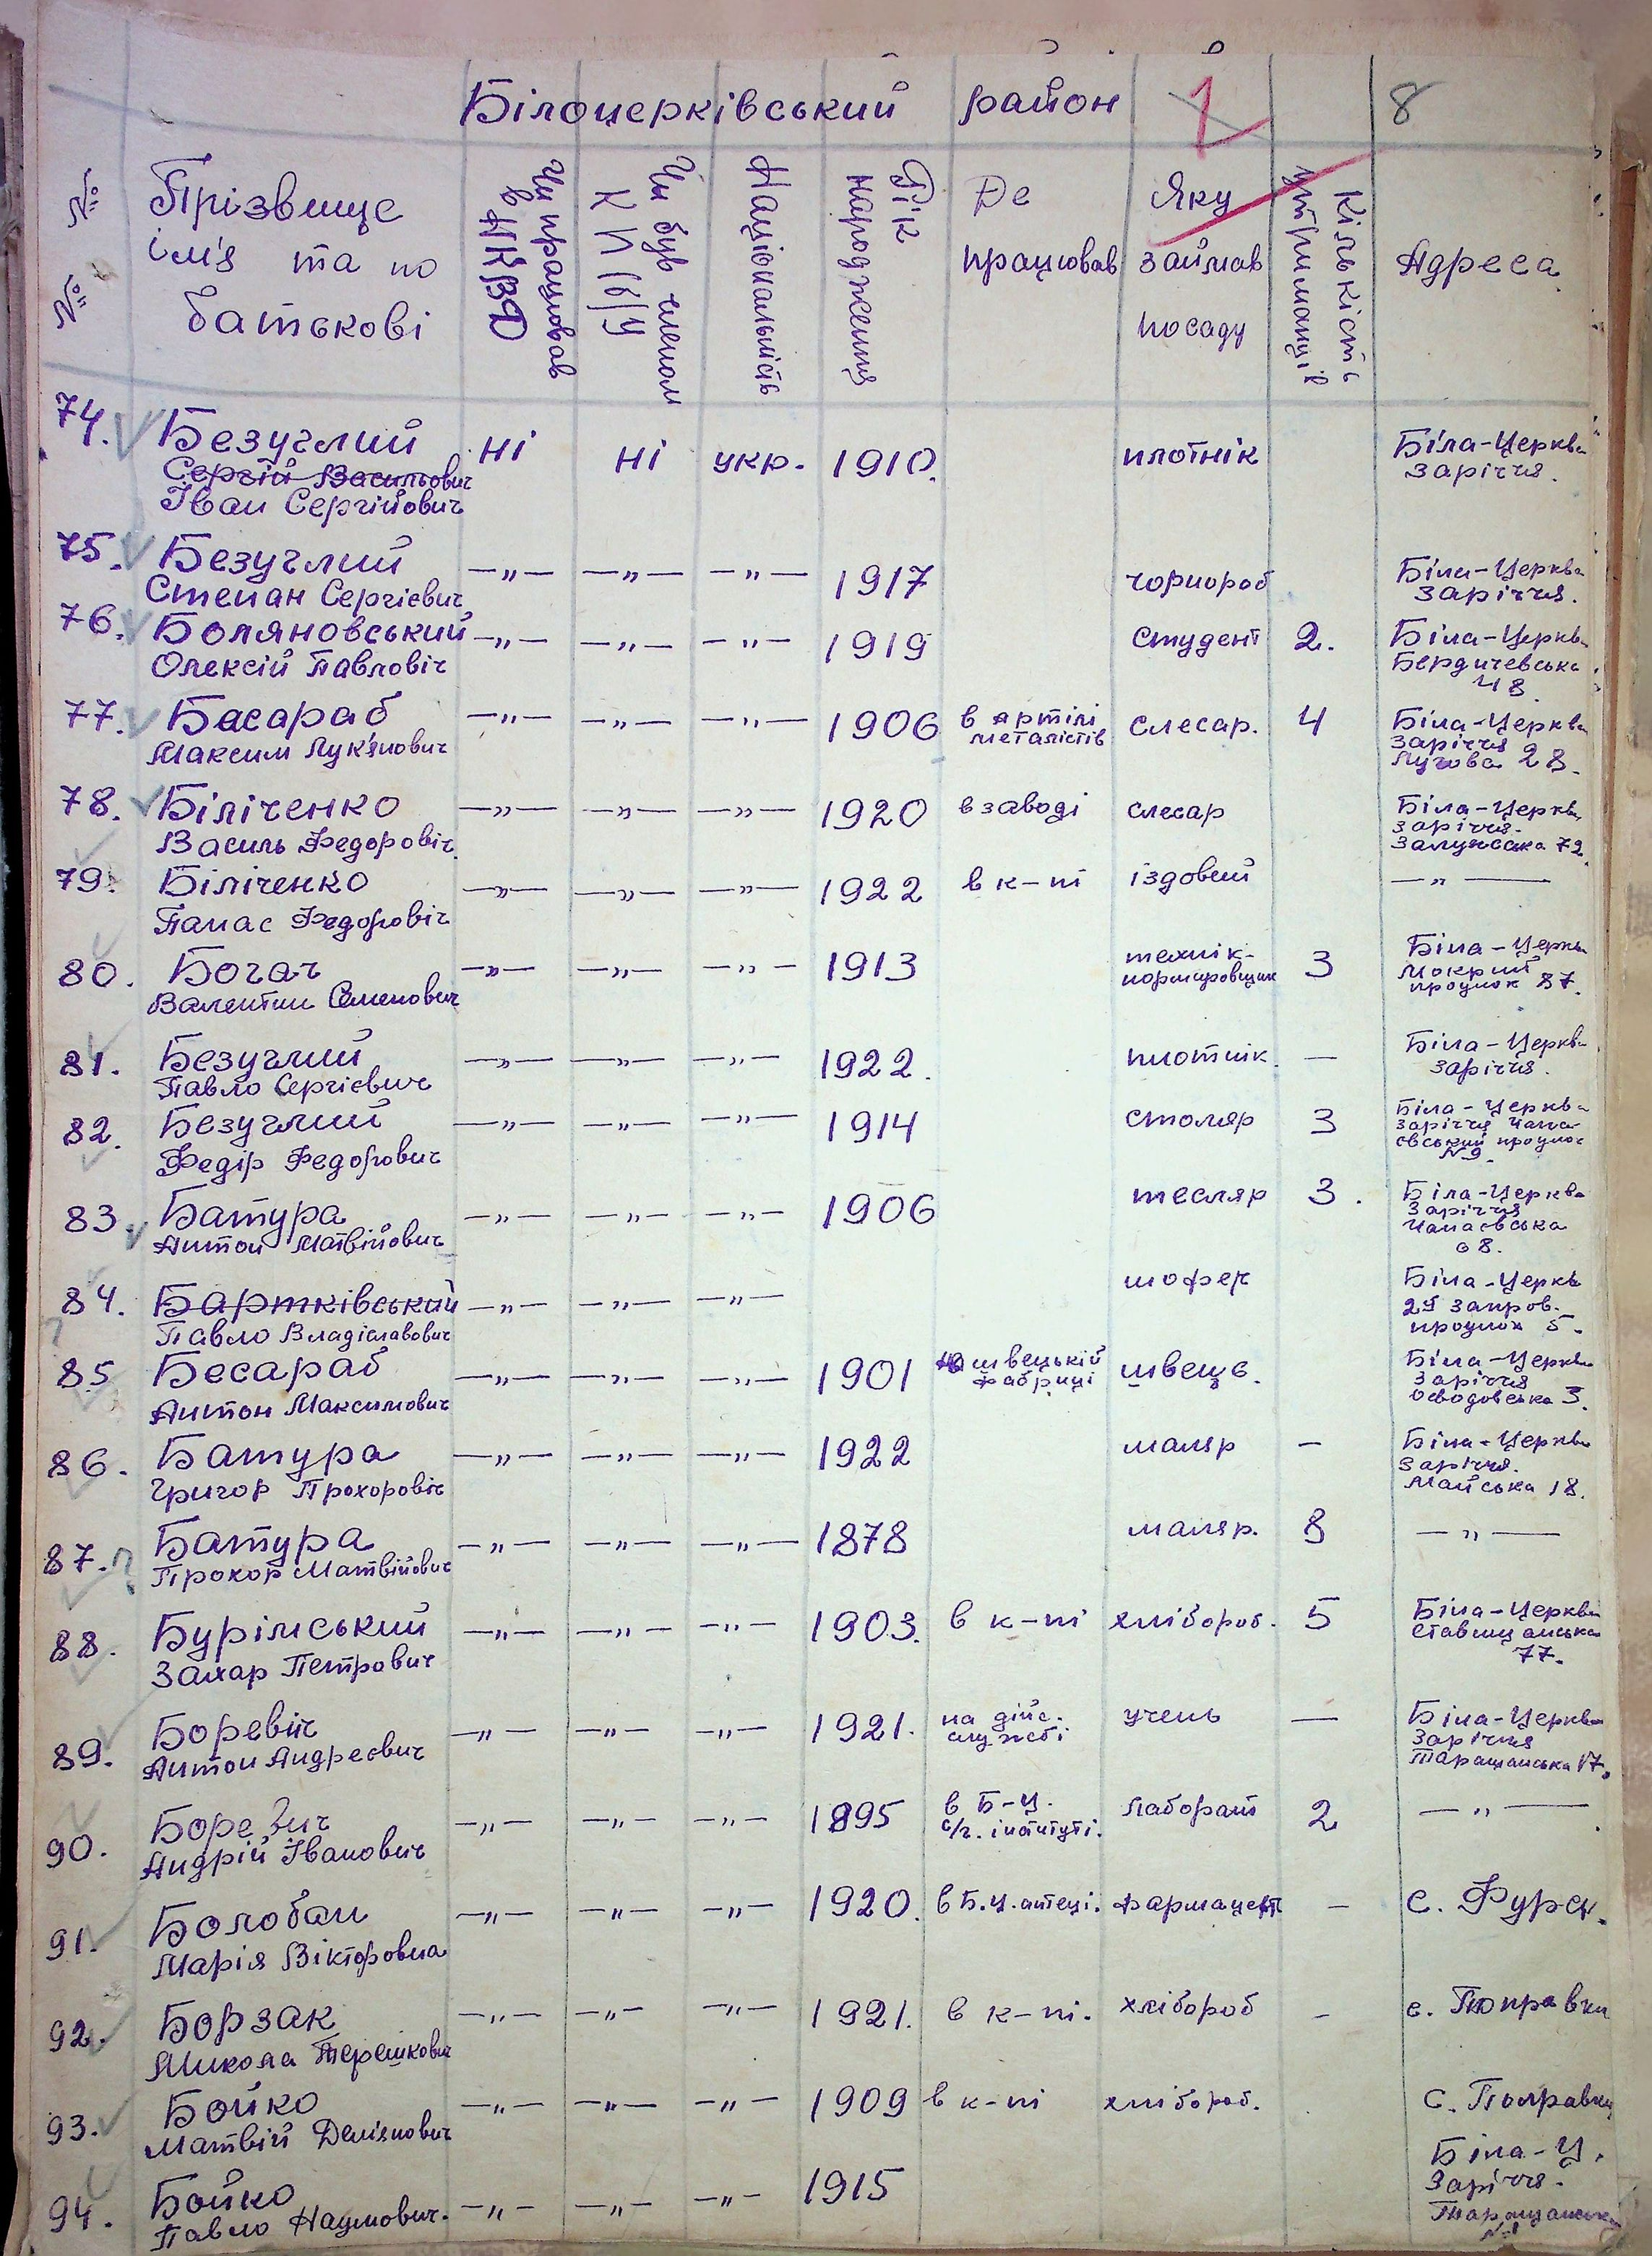 Білоцерківський район 1 8
№ № Прізвище ім'я та по батькові
Чи працював в НКВД
Чи був членом КП(б)У
Національність
Рік народження
Де працював
Яку займав посаду
Кількість утриманців
Адреса
74. Безуглий ні ні укр. 1910. плотнік Біла-Церква
Сергій Васильович Заріччя.
Іван Сергійович
75. Безуглий —„— —„— —„— 1917 чорнороб Біла-Церква
Степан Сергієвич Заріччя.
76. Боляновський —„— —„— —„— 1919 студент 2. Біла-Церква
Олексій Павловіч Бердичевська
48
77. Басараб —„— —„— —„— 1906 в артілі слесар. 4 Біла-Церква
Максим Лук'янович металістів Заріччя
Лугова 28.
78. Біліченко —„— —„— —„— 1920 в заводі слесар Біла-Церква
Василь Федоровіч Заріччя.
72
79. Біліченко —„— —„— —„— 1922 в к-пі іздовий —„—
Панас Федоровіч
80. Богач —„— —„— —„— 1913 технік- 3 Біла-Церква
Валентин Семенович нормировщик Мокрий
проулок 87.
81. Безуглий —„— —„— —„— 1922. плотнік — Біла-Церква
Павло Сергієвич Заріччя.
82. Безуглий —„— —„— —„— 1914 столяр 3 Біла-Церква
Федір Федорович Заріччя Чапа-
євський проулок
№9.
83. Батура —„— —„— —„— 1906 тесляр 3. Біла-Церква
Антон Матвійович Заріччя
Чапаєвська
8.
84. Бартківський —„— —„— —„— шофер Біла-Церква
Павло Владіславович 2й Запров.
проулок 5.
85 Бесараб —„— —„— —„— 1901 на швецькій швець. Біла-Церква
Антон Максимович фабриці Заріччя
3.
86. Батура —„— —„— —„— 1922 маляр — Біла-Церква
Григор Прохоровіч Заріччя.
Майська 18.
87. ? Батура —„— —„— —„— 1878 маляр. 8 —„—
Прохор Матвійович
88. Бурімський —„— —„— —„— 1903. в к-пі хлібороб. 5 Біла-Церква
Захар Петрович Ставищанська
77.
89. Боревич —„— —„— —„— 1921. на дійс. учень — Біла-Церква
Антон Андреєвич службі Заріччя
Таращанська 17.
90. Боревич —„— —„— —„— 1895 в Б-Ц. лаборант 2 —„—
Андрій Іванович с/г. інституті.
91. Болобан —„— —„— —„— 1920. в Б.Ц. аптеці. фармацевт - с. Фурси.
Марія Вікторовна
92. Борзак —„— —„— —„— 1921. в к-пі. хлібороб - с. Поправки
Микола Терешкович
93. Бойко —„— —„— —„— 1909 в к-пі хлібороб. с. Поправки
Матвій Дем'янович
94. Бойко —„— —„— —„— 1915 Біла-Ц.
Павло Наумович. Заріччя.
Таращанська